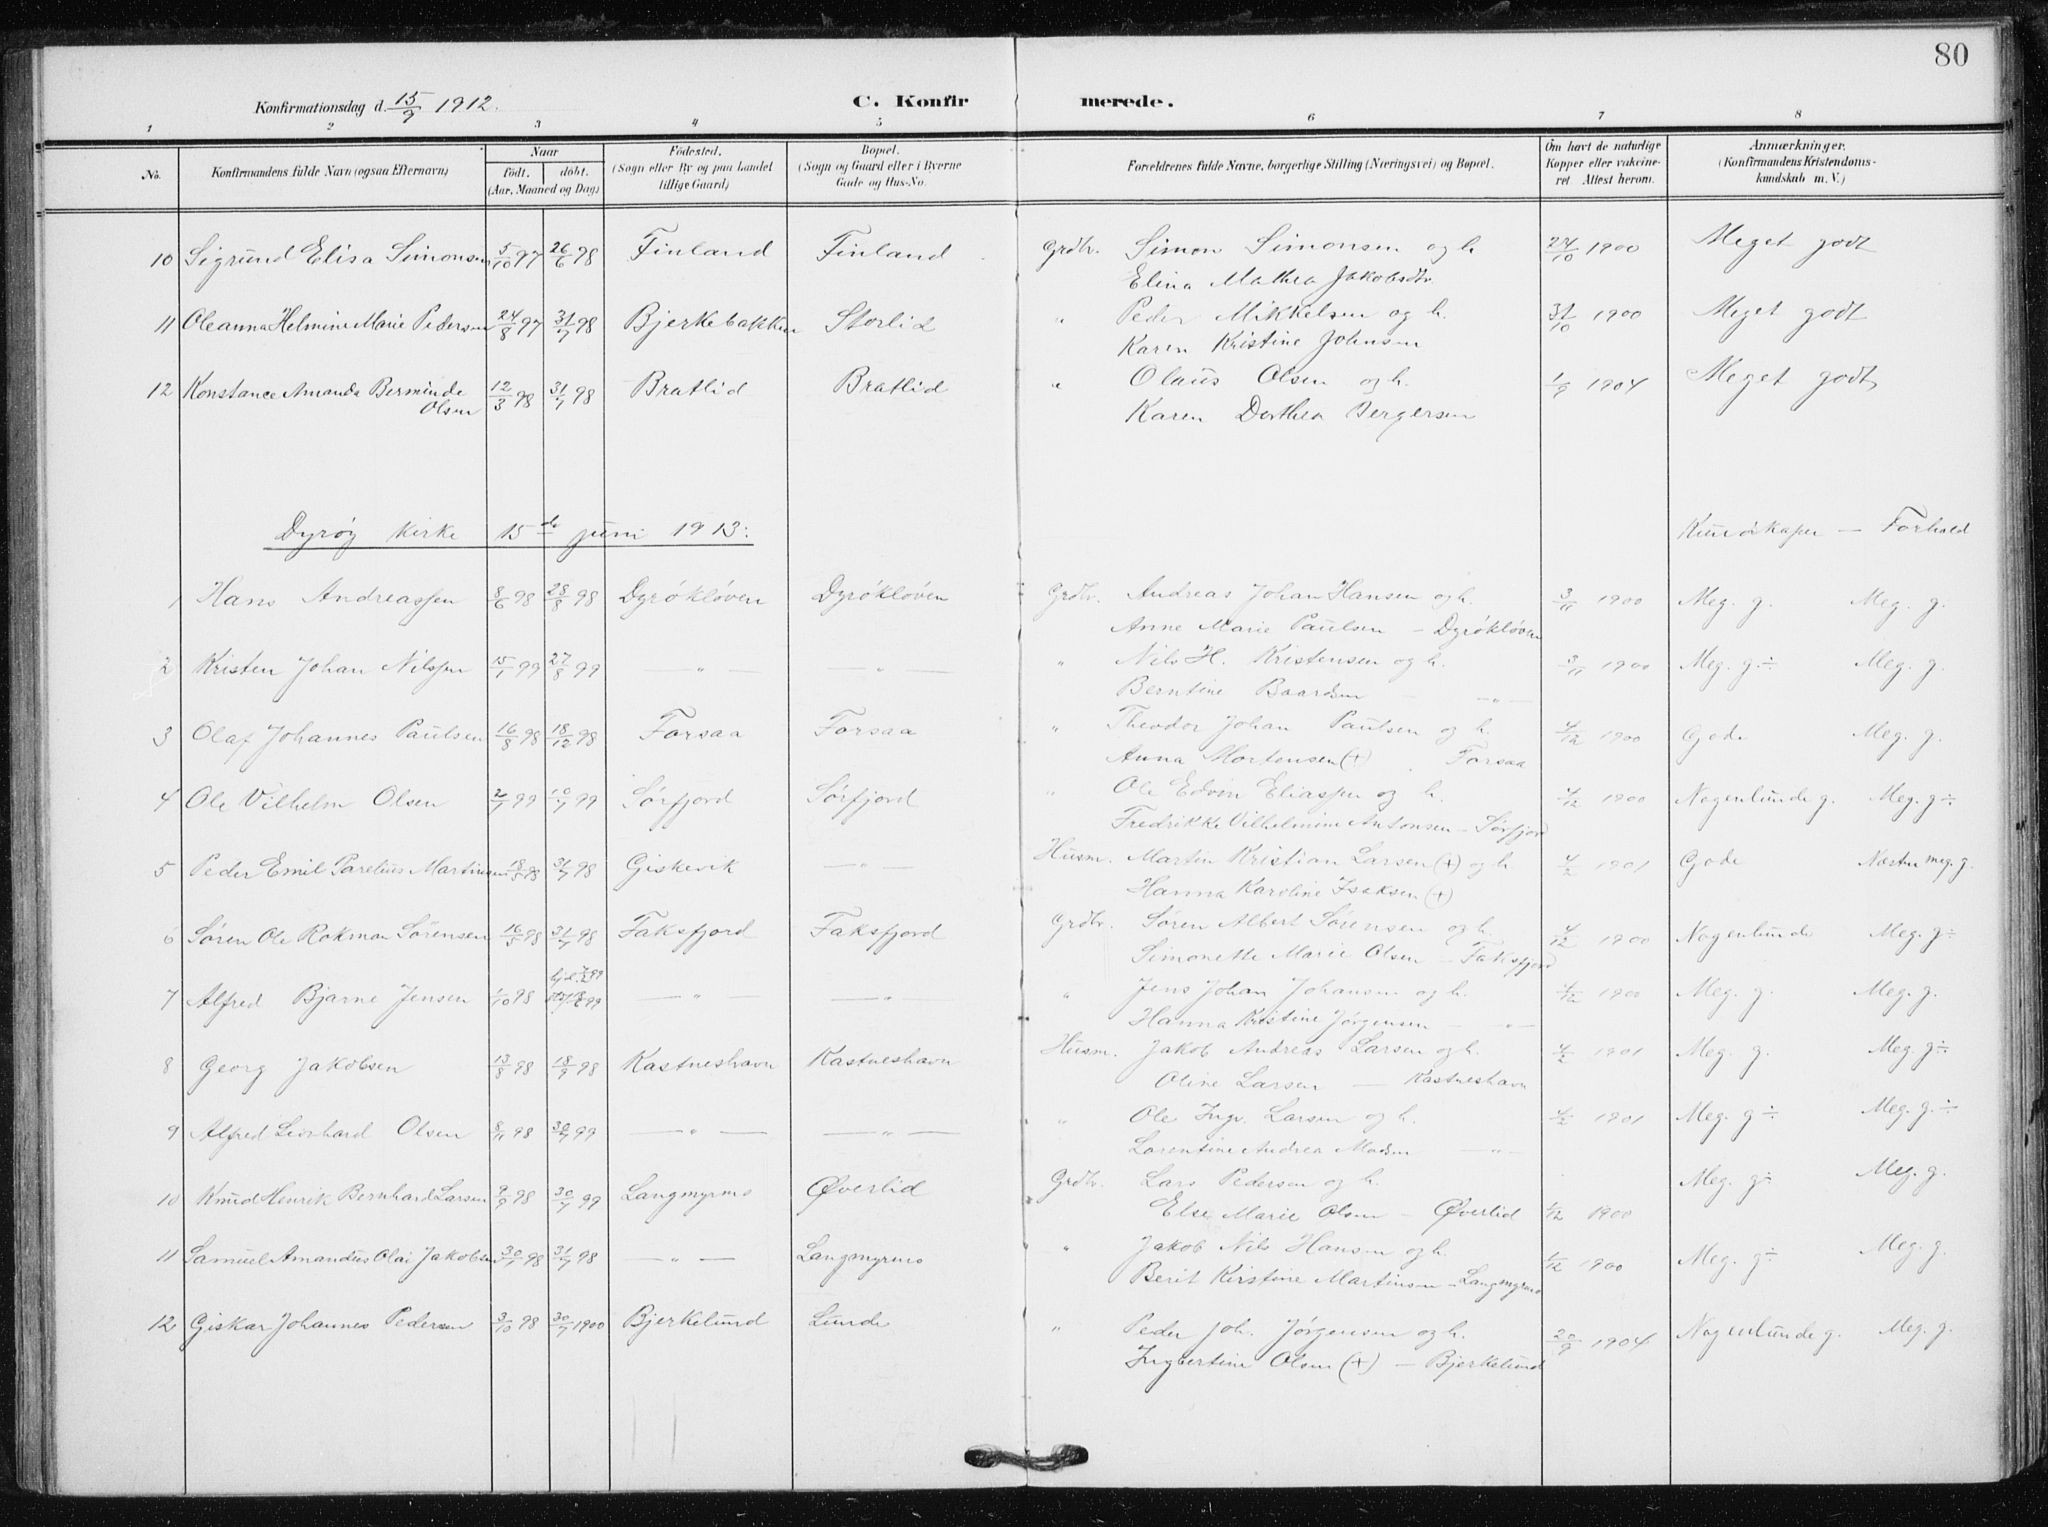 80
Konfirmationsdag d. 15/9 1912. C. Konfirmerede.
1 2 3 4 5 6 7 8
No. Konfirmandens fulde Navn (ogsaa Efternavn) Naar født. døbt. (Aar, Maaned og Dag) Fødested. (Sogn eller By og paa Landet tillige Gaard) Bopæl. (Sogn og Gaard eller i Byerne Gade og Hus-No. Forældrenes fulde Navne, borgerlige Stilling (Næringsvei) og Bopæl. Om havt de naturlige Kopper eller vakcineret. Attest herom. Anmærkninger. (Konfirmandens Kristendomskundskab m. V.)
10 Sigrund Elisa Simonsen 5/10 97 26/6 98 Finland Finland Grdbr. Simon Simonsen og h. 24/10 1900 Meget godt
Elina Mathea Jakobsdtr.
11 Oleanna Helmine Marie Pedersen 24/8 97 31/7 98 Bjerkebakken Storlid " Peder Mikkelsen og h. 31/10 1900 Meget godt
Karen Kristine Johnsen
12 Konstance Amanda Berminde Olsen 12/3 98 31/7 98 Bratlid Bratlid " Olaus Olsen og h. 1/9 1904 Meget godt
Karen Dorthea Bergersen
Dyrøy Kirke 15de juni 1913: Kundskaper — Forhold
1 Hans Andreassen 8/6 98 28/8 98 Dyrøkløven Dyrøkløven Grdbr. Andreas Johan Hansen og h. 3/11 1900 Meg. g. Meg. g.
Anne Marie Paulsen – Dyrøkløven
2 Kristen Johan Nilssen 15/1 99 27/8 99 — " — — " — " Nils H. Kristensen og h. 3/11 1900 Meg. g ÷ Meg. g.
Berntine Baardsen — — " —
3 Olaf Johannes Paulsen 16/8 98 18/12 98 Forsaa Forsaa " Theodor Johan Paulsen og h. 4/12 1900 Gode Meg. g.
Anna Mortensen (+) Forsaa
4 Ole Vilhelm Olsen 2/1 99 10/7 99 Sørfjord Sørfjord " Ole Edvin Eliassen og h. 4/12 1900 Nogenlunde g. Meg. g ÷
Fredrikke Vilhelmine Antonsen – Sørfjord
5 Peder Emil Parelius Martinsen 18/5 98 31/7 98 Giskevik — " — Husm. Martin Kristian Larsen (+) og h. 4/2 1901 Gode Næsten meg. g.
Hanna Karoline Isaksen (+)
6 Søren Ole Rokman Sørensen 16/5 98 31/7 98 Faksfjord Faksfjord Grdbr. Søren Albert Sørensen og h. 4/12 1900 Nogenlunde Meg. g ÷
Simonette Marie Olsen – Faksfjord
7 Alfred Bjarne Jensen 1/10 98 — " — — " — " Jens Johan Johansen og h. 4/12 1900 Meg. g. Meg. g.
Hanna Kristine Jørgensen — — " —
8 Georg Jakobsen 13/8 98 18/9 98 Kastneshavn Kastneshavn Husm. Jakob Andreas Larsen og h. 4/2 1901 Meg. g. Meg. g ÷
Oline Larsen — Kastneshavn
9 Alfred Leonhard Olsen 8/11 98 30/7 99 — " — — " — " Ole Ingv. Larsen og h. 4/2 1901 Meg. g ÷ Meg. g. ÷
Lorentine Andrea Madsen — " —
10 Knud Henrik Bernhard Larsen 9/9 98 30/7 99 Langmyrmo Øverlid Grdbr. Lars Pedersen og h. Meg. g ÷ Meg. g.
Else Marie Olsen – Øverlid 1/12 1900
11 Samuel Amandus Olai Jakobsen 30/1 98 31/7 98 — " — Langmyrmo " Jakob Nils Hansen og h. 1/12 1900 Meg. g ÷ Meg. g.
Berit Kirstine Martinsen – Langmyrmo
12 Giskar Johannes Pedersen 3/10 98 30/7 1900 Bjerkelund Lunde " Peder Joh. Jørgensen og h. 20/9 1904 Nogenlunde g. Meg. g.
Ingbertine Olsen (+) – Bjerkelund